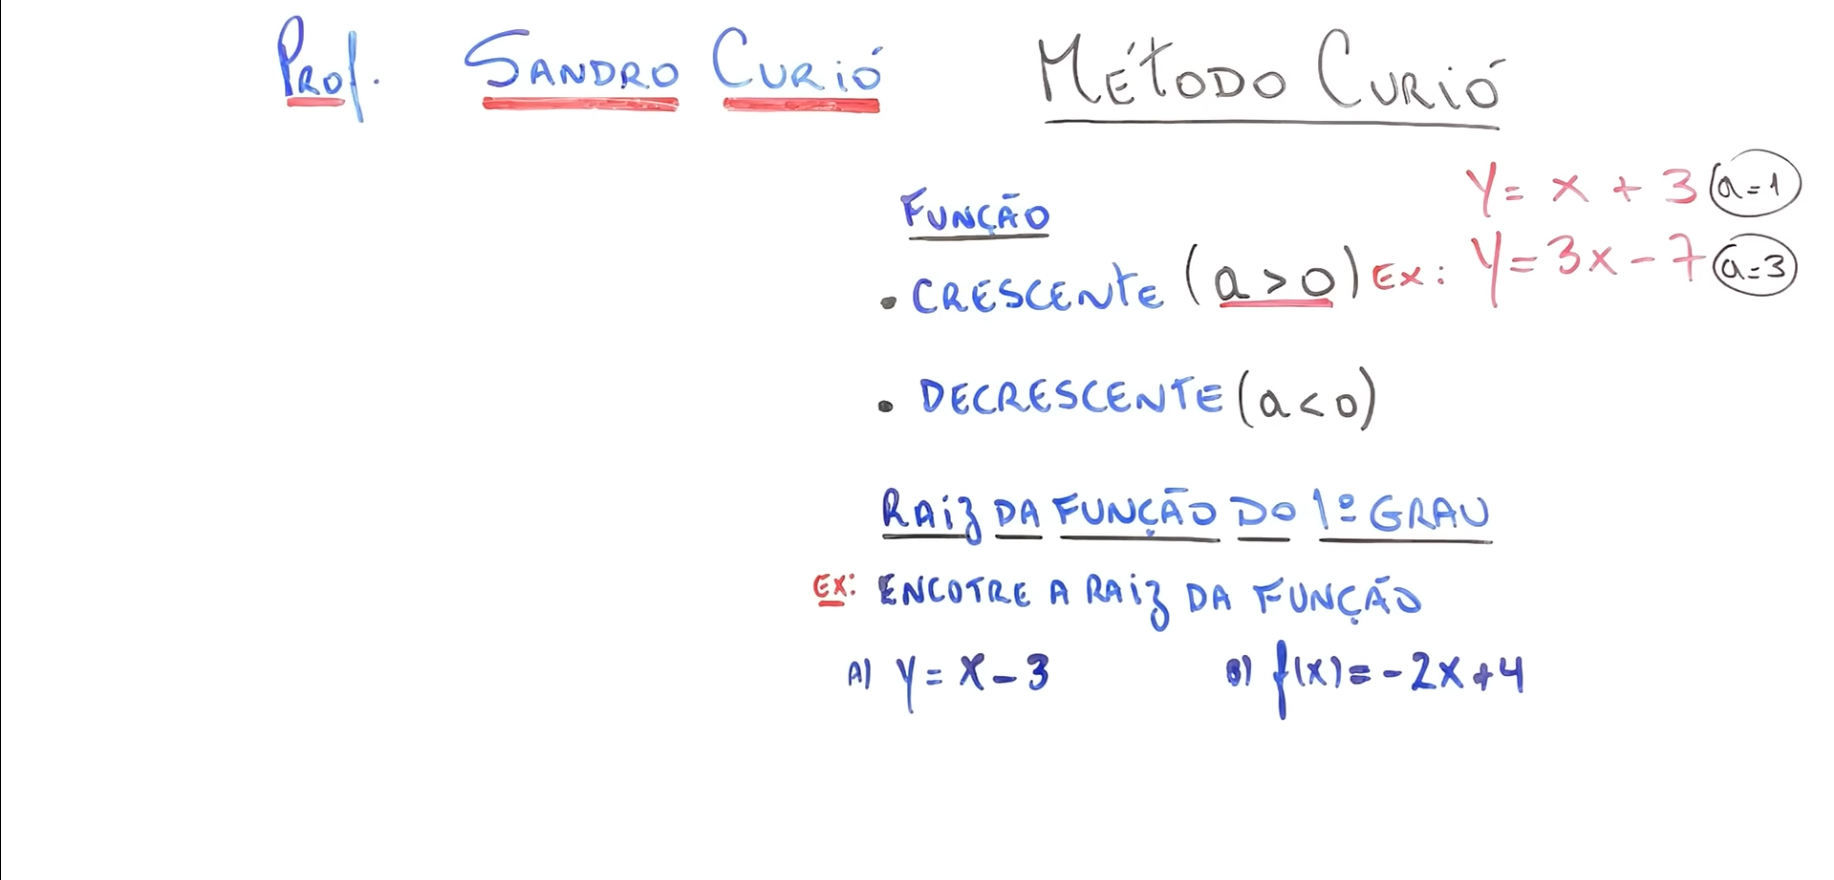 Prof. SANDRO CURIÓ MÉTODO CURIÓ
FUNÇÃO
y = x + 3 a=1
• CRESCENTE (a > 0) EX: y = 3x - 7 a=3
• DECRESCENTE (a < 0)
RAIZ DA FUNÇÃO DO 1º GRAU
EX: ENCOTRE A RAIZ DA FUNÇÃO
A) y = x - 3 B) f(x) = -2x + 4